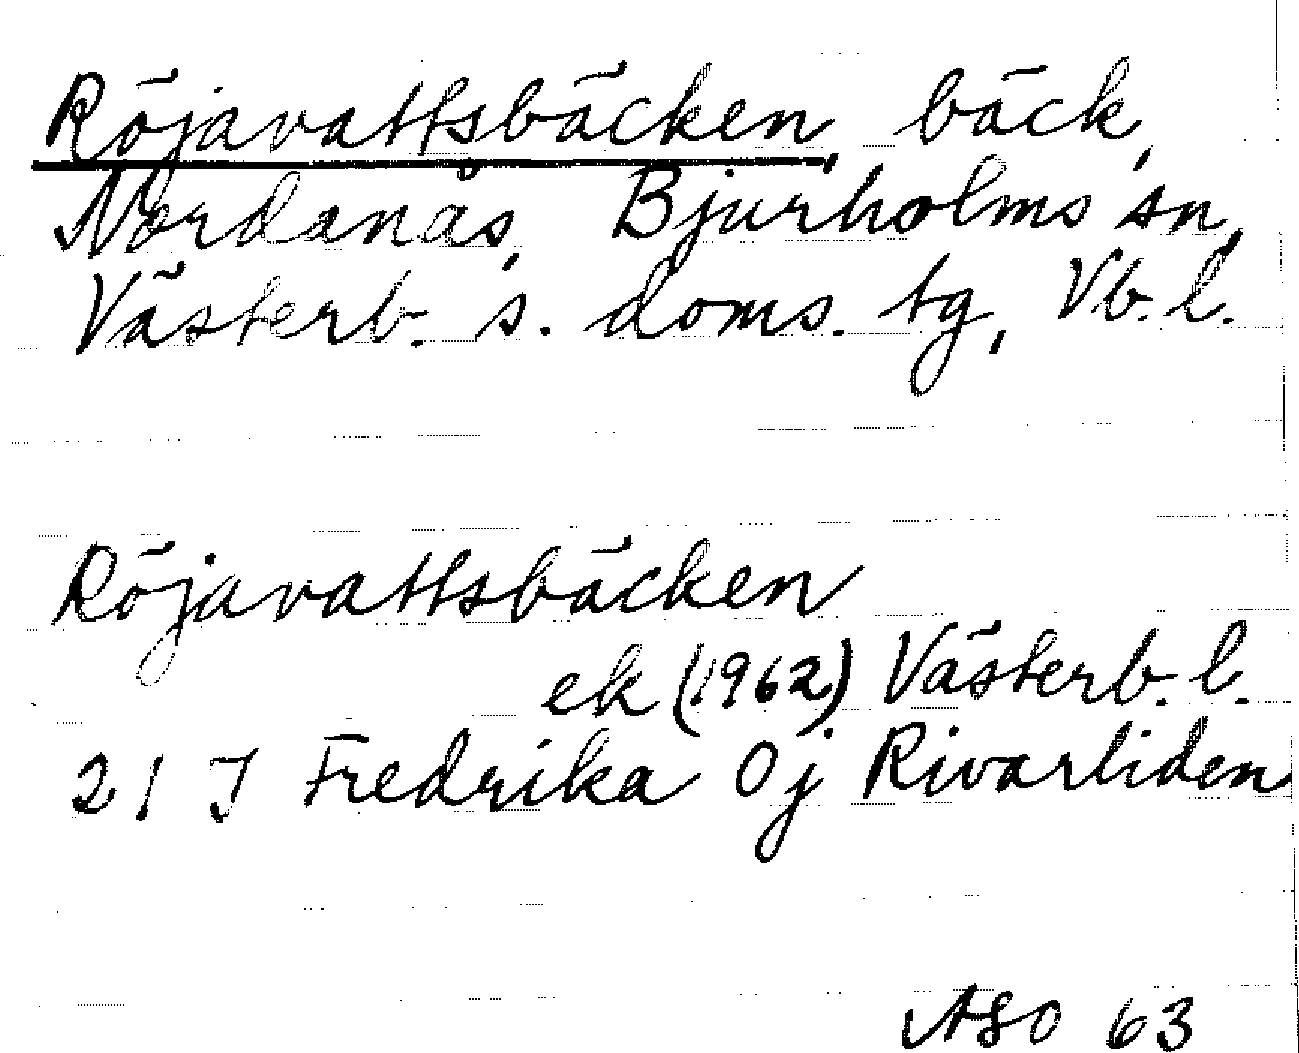 Röjavattsbäcken, bäck,
Nordanås, Bjurholms sn,
Västerb. s. doms. tg, Vb. l.
Röjavattsbäcken
ek (1962) Västerb. l.
21 J Fredrika Oj Rivarliden
ASO 63